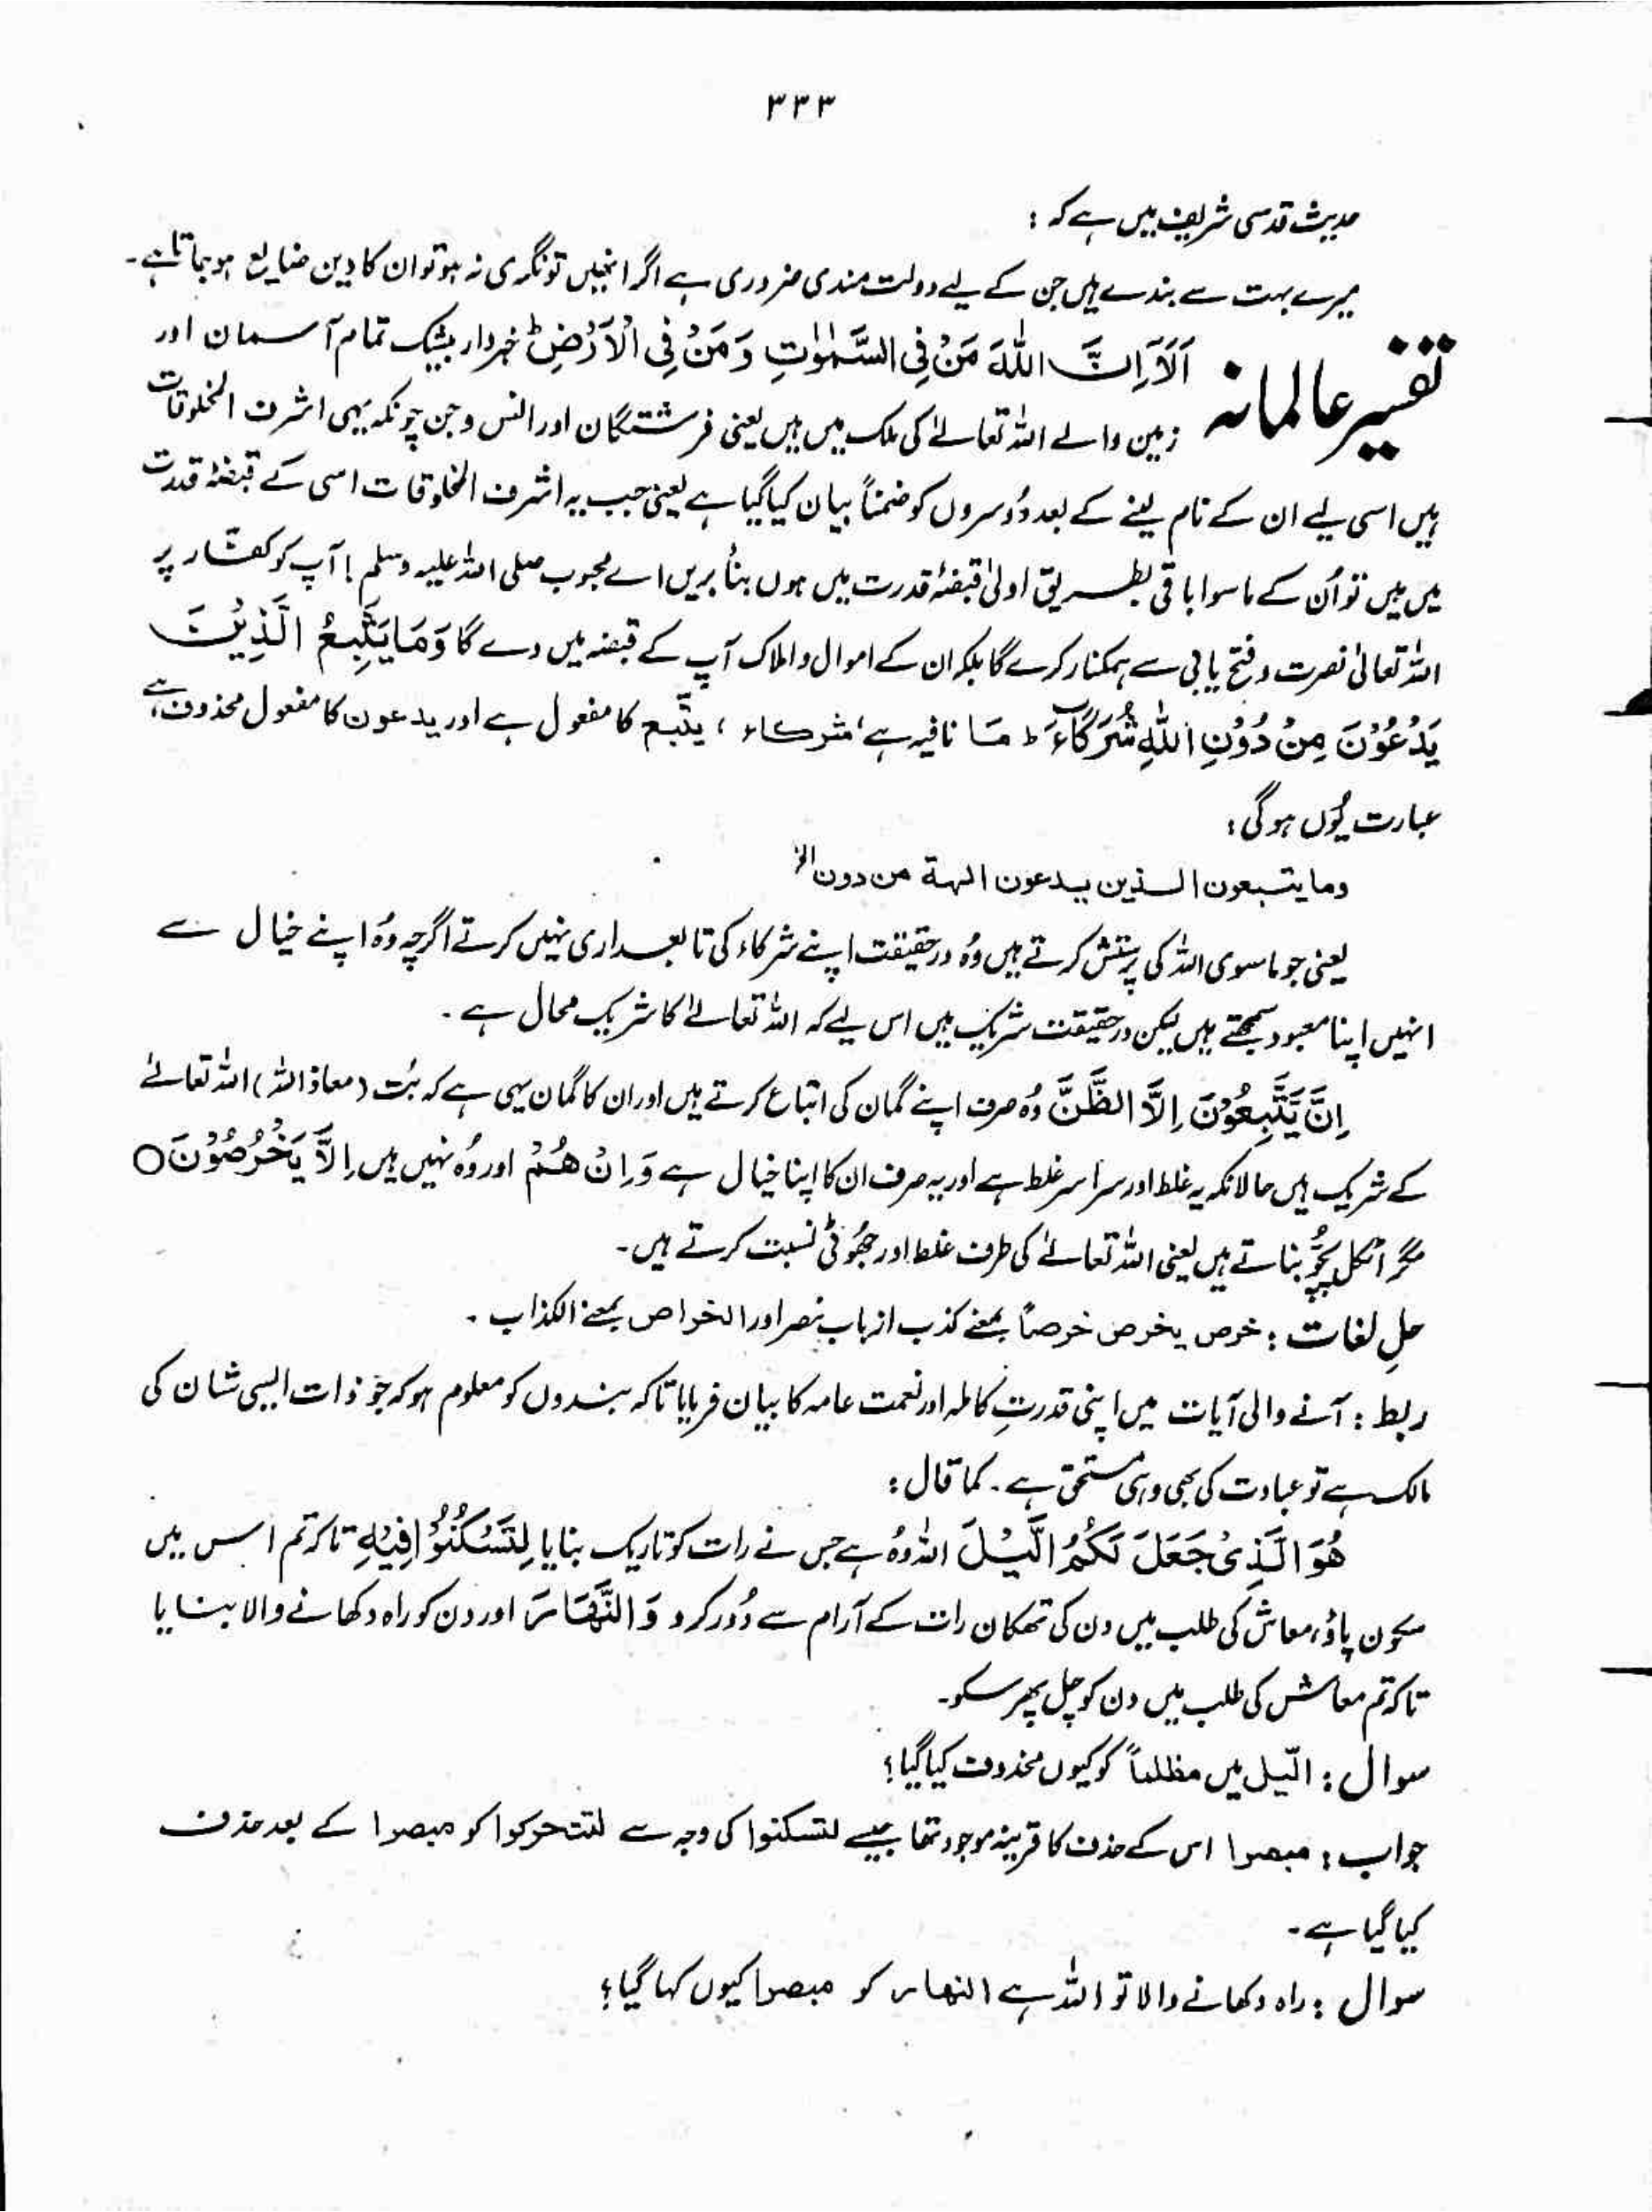 ۳۳۳
حدیث قدسی شریف میں ہے کہ :
میرے بہت سے بندے ہیں جن کے لیے دولت مندی ضروری ہے اگر انہیں تونگری نہ ہو تو ان کا دین ضایع ہو جاتا ہے۔
تفسیر عالمانہ اَلَاۤ اِنَّ اللّٰہَ مَنْ فِی السَّمٰوٰتِ وَ مَنْ فِی الْاَرْضِ ؕ خبردار بیشک تمام آسمان اور
زمین والے اللہ تعالےٰ کی ملک میں ہیں یعنی فرشتگان اور انس و جن چونکہ یہی اشرف المخلوقات
ہیں اسی لیے ان کے نام لینے کے بعد دُوسروں کو ضمناً بیان کیا گیا ہے یعنی جب یہ اشرف المخلوقات اسی کے قبضۂ قدرت
میں ہیں تو اُن کے ماسوا باقی بطریق اولیٰ قبضۂ قدرت میں ہوں بنأ بریں اے محبوب صلی اللہ علیہ وسلم ! آپ کو کفّار پر
اللہ تعالیٰ نصرت و فتح یابی سے ہمکنار کرے گا بلکہ ان کے اموال و املاک آپ کے قبضہ میں دے گا وَ مَا یَتَّبِعُ الَّذِیْنَ
یَدْعُوْنَ مِنْ دُوْنِ اللّٰہِ شُرَکَآءَ ؕ مَا نافیہ ہے ، شرکاء ، یتّبع کا مفعول ہے اور یدعون کا مفعول محذوف ہے
عبارت یُوں ہو گی :
وما یتبعون الذین یدعون الہة من دون اللہ
یعنی جو ماسوی اللہ کی پرستش کرتے ہیں وُہ درحقیقت اپنے شرکاء کی تابعداری نہیں کرتے اگرچہ وُہ اپنے خیال سے
انہیں اپنا معبود سمجھتے ہیں لیکن درحقیقت شریک ہیں اس لیے کہ اللہ تعالےٰ کا شریک محال ہے ۔
اِنَّ یَّتَّبِعُوْنَ اِلَّا الظَّنَّ وُہ صرف اپنے گمان کی اتباع کرتے ہیں اور ان کا گمان یہی ہے کہ بُت (معاذ اللہ) اللہ تعالےٰ
کے شریک ہیں حالانکہ یہ غلط اور سراسر غلط ہے اور یہ صرف ان کا اپنا خیال ہے وَ اِنْ ھُمْ اور وُہ نہیں ہیں اِلَّا یَخْرُصُوْنَ ○
مگر اٹکل پچُّو بناتے ہیں یعنی اللہ تعالےٰ کی طرف غلط اور جھُوٹی نسبت کرتے ہیں۔
حلِ لغات : خرص یخرص خرصاً بمعنے کذب از باب نصر اور الخراص بمعنے الکذاب ۔
ربط : آنے والی آیات میں اپنی قدرتِ کاملہ اور نعمت عامہ کا بیان فرمایا تاکہ بندوں کو معلوم ہو کہ جو ذات ایسی شان کی
مالک ہے تو عبادت کی بھی وہی مستحق ہے ۔ کما قال :
ھُوَ الَّذِیْ جَعَلَ لَکُمُ الَّیْلَ اللہ وُہ ہے جس نے رات کو تاریک بنایا لِتَسْکُنُوْا فِیْہِ تاکہ تم اس میں
سکون پاؤ ، معاش کی طلب میں دن کی تھکان رات کے آرام سے دُور کرو وَ النَّھَارَ اور دن کو راہ دکھانے والا بنایا
تاکہ تم معاش کی طلب میں دن کو چل پھر سکو۔
سوال : الّیل میں مظلماً کو کیوں محذوف کیا گیا ؟
جواب : مبصرا اس کے حذف کا قرینہ موجود تھا جیسے لتسکنوا کی وجہ سے لتتحرکوا کو مبصرا کے بعد حذف
کیا گیا ہے ۔
سوال : راہ دکھانے والا تو اللہ ہے النھار کو مبصرا کیوں کہا گیا ؟